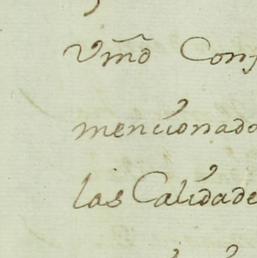 Vm̃d Conf
mencionado
las Calidade